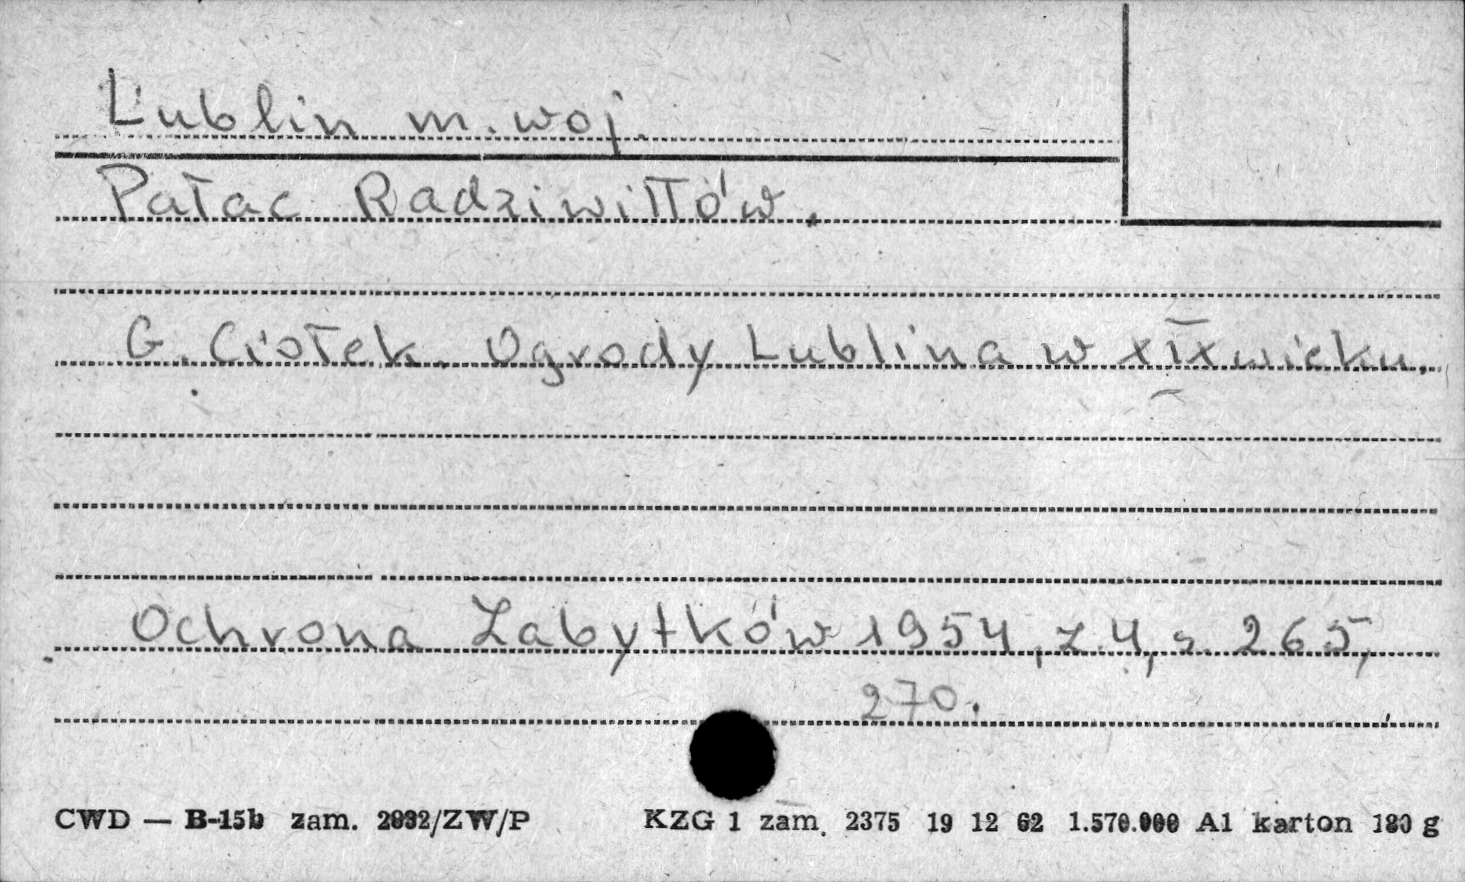 Lublin m. woj.
Pałac Radziwiłłów.
G. Ciołek. Ogrody Lublina w XIX wieku.
Ochrona Zabytków 1954, z. 4, s. 265,
270.
CWD — B-15b zam. 2032/ZW/P KZG 1 zam. 2375 19 12 62 1.570.000 A1 karton 180 g